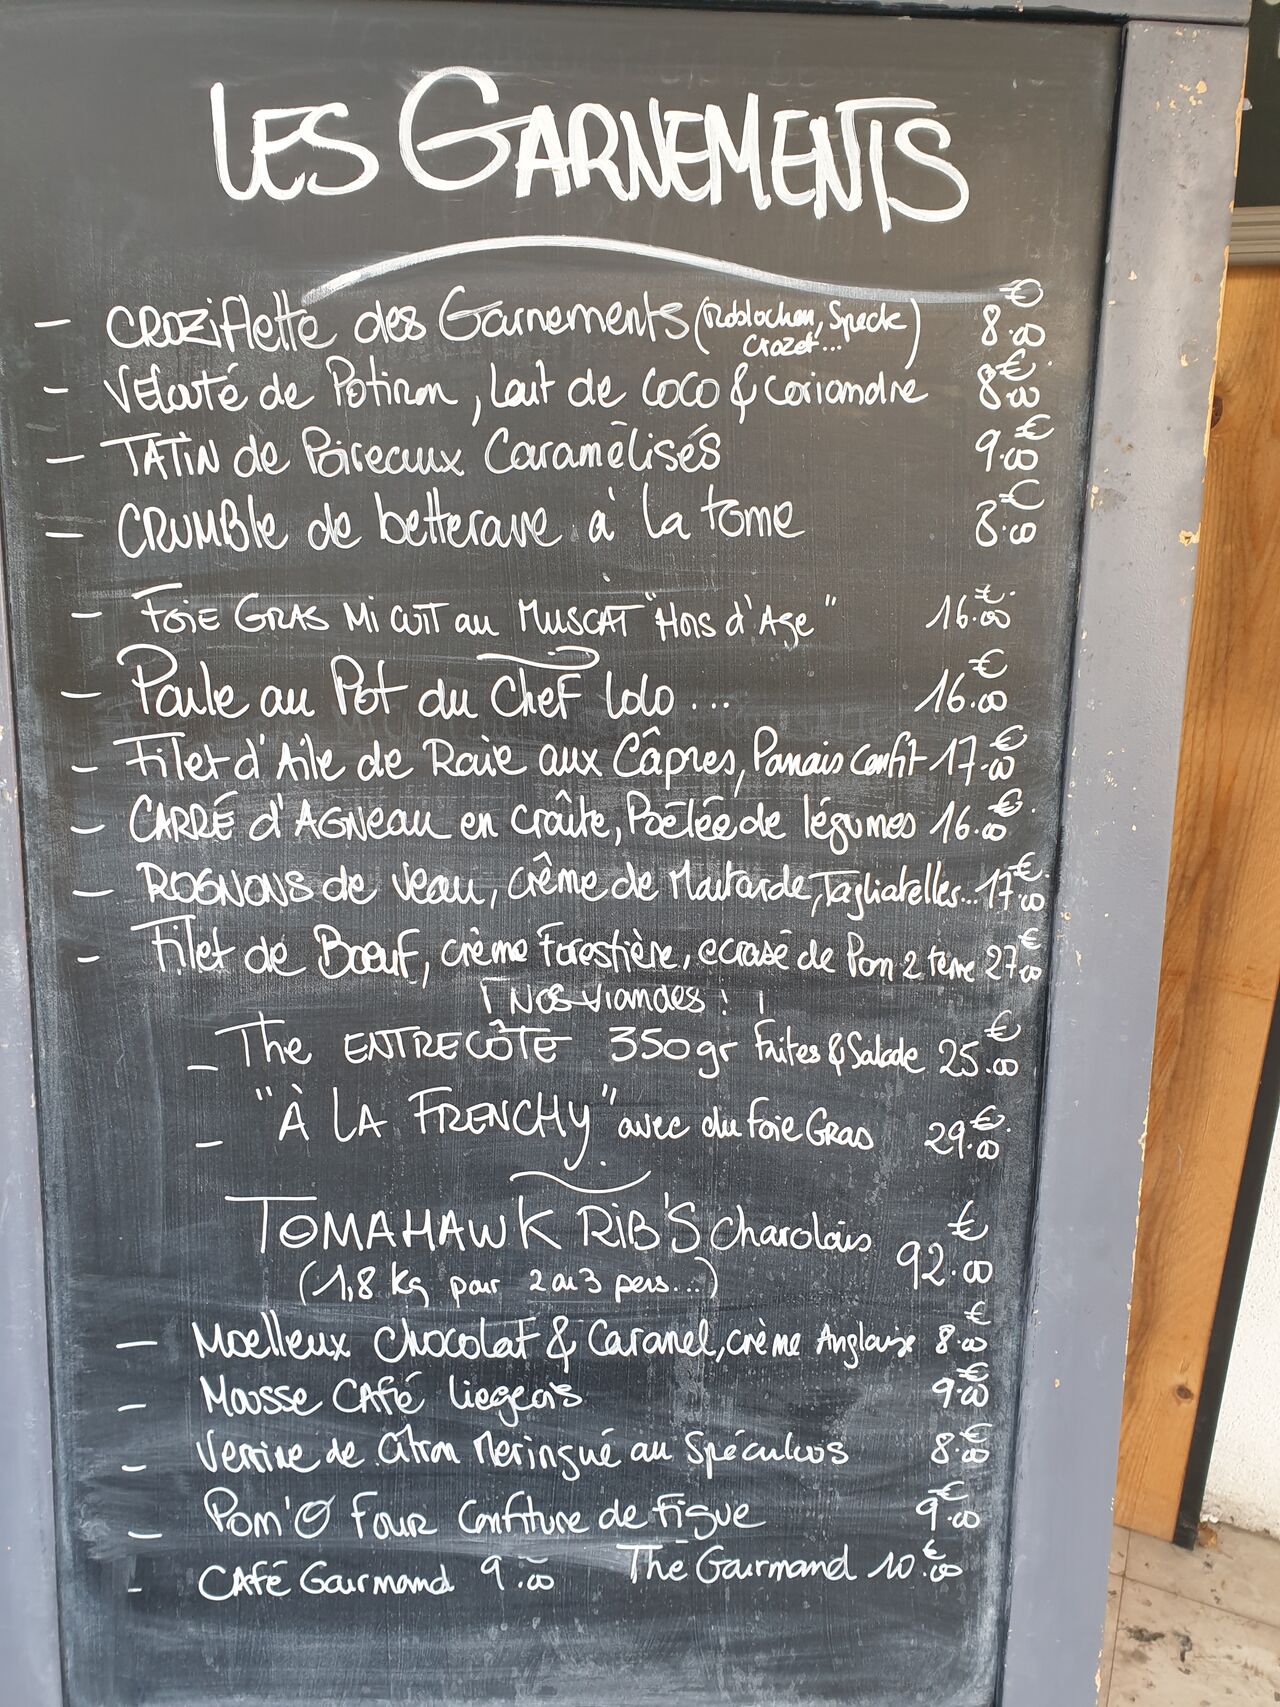 LES GARNEMENTS
- CROZIFLETTE des Garnements (Roblochon, Speck 8.00€
Crozet...)
- VELOUTÉ de Potiron, Lait de coco & coriandre 8.00€
- TATIN de Poireaux Caramélisés 9.00€
- CRUMBLE de betterave à la tome 8.00€
- FOIE GRAS Mi CUIT au MUSCAT "Hors d'Age" 16.00€
- Poule au Pot du Chef Lolo... 16.00€
- Filet d'Aile de Raie aux Câpres, Panais confit 17.00€
- CARRÉ d'AGNeau en croûte, Poêlée de légumes 16.00€
- ROGNONS de veau, crême de Moutarde, Tagliatelles... 17.00€
- Filet de Bœuf, crème Forestière, ecrasé de Pom 2 terre 27.00€
Nos Viandes :
- The ENTRECÔTE 350gr Frites & Salade 25.00€
- "À LA FRENCHY" avec du foie GRAS 29.00€
TOMAHAWK RIB'S Charolais 92.00€
(1,8 kg pour 2 ou 3 pers...)
- Moelleux Chocolat & Caramel, crème Anglaise 8.00€
- Mousse CAFÉ Liegeois 9.00€
- Verrine de Citron Meringué au Spéculoos 8.00€
- Pom'O Four Confiture de Figue 9.00€
- CAFÉ Gourmand 9.00 Thé Gourmand 10.00€